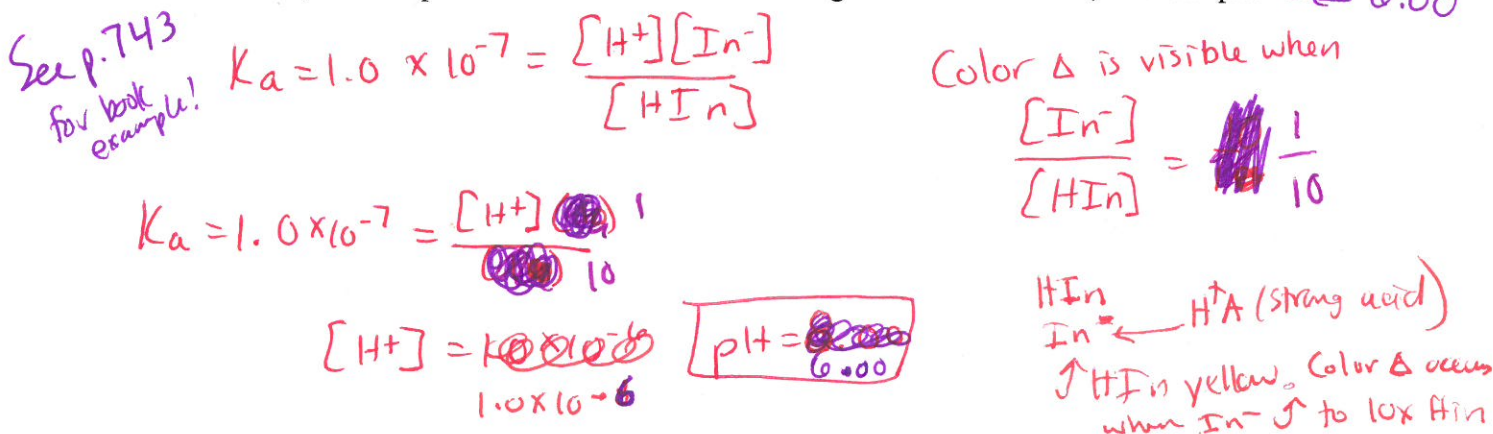 6.00
See p.743
for book
example!
Ka = 1.0 × 10⁻⁷ = [H⁺][In⁻] / [HIn]
Color Δ is visible when
[In⁻] / [HIn] = 1 / 10
Ka = 1.0 × 10⁻⁷ = [H⁺] 1 / 10
[H⁺] =
1.0 × 10⁻⁶
pH =
6.00
HIn
In⁻ ← H⁺A (strong acid)
↑ HIn yellow. Color Δ occurs
when In⁻ ↑ to 10x HIn